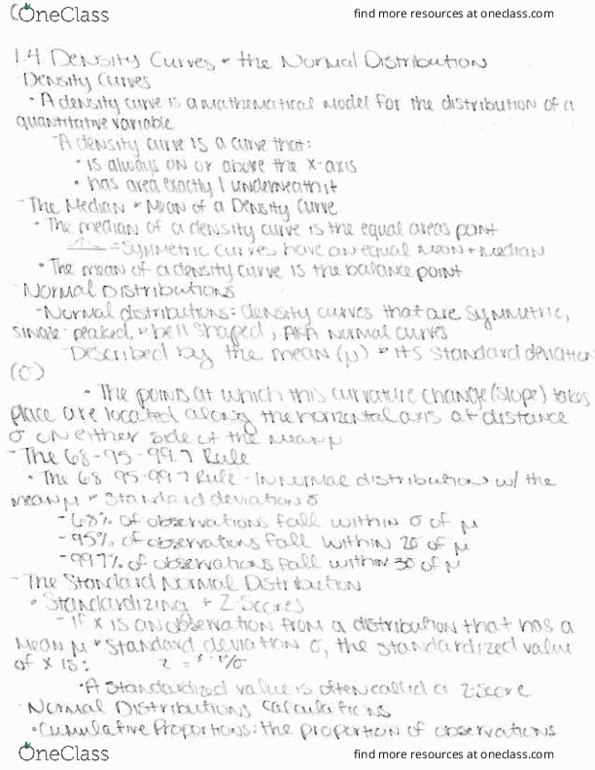 OneClass
find more resources at oneclass.com
1.4 Density Curves + the Normal Distribution
-Density Curves
• A density curve is a mathematical model for the distribution of a
quantitative variable
-A density curve is a curve that:
• is always on or above the x-axis
• has area exactly 1 underneath it
-The Median + Mean of a Density Curve
• The median of a density curve is the equal areas point
=Symmetric curves have an equal mean + median
• The mean of a density curve is the balance point
-Normal Distributions
-Normal distributions: density curves that are symmetric,
single-peaked, + bell shaped; AKA normal curves
-Described by the mean (μ) + its standard deviation
(σ)
• The points at which this curvature change (slope) takes
place are located along the horizontal axis at distance
σ on either side of the mean μ
-The 68-95-99.7 Rule
• The 68-95-99.7 Rule - In normal distributions w/ the
mean μ + standard deviation σ
-68% of observations fall within σ of μ
-95% of observations fall within 2σ of μ
-99.7% of observations fall within 3σ of μ
-The Standard Normal Distribution
• Standardizing + Z-Scores
-If x is an observation from a distribution that has a
mean μ + standard deviation σ, the standardized value
of x is: z = x-μ/σ
• A standardized value is often called a z-score
-Normal Distributions Calculations
• Cumulative Proportions: the proportion of observations
OneClass
find more resources at oneclass.com